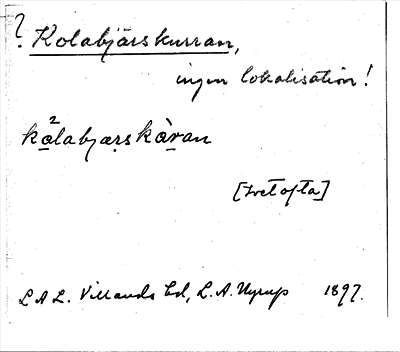 ? Kolabjärskurran,
ingen lokalisation!
kålabjærskàran
[Ivetofta]
L A L. Villands hd, L. A. Nyrup 1897.